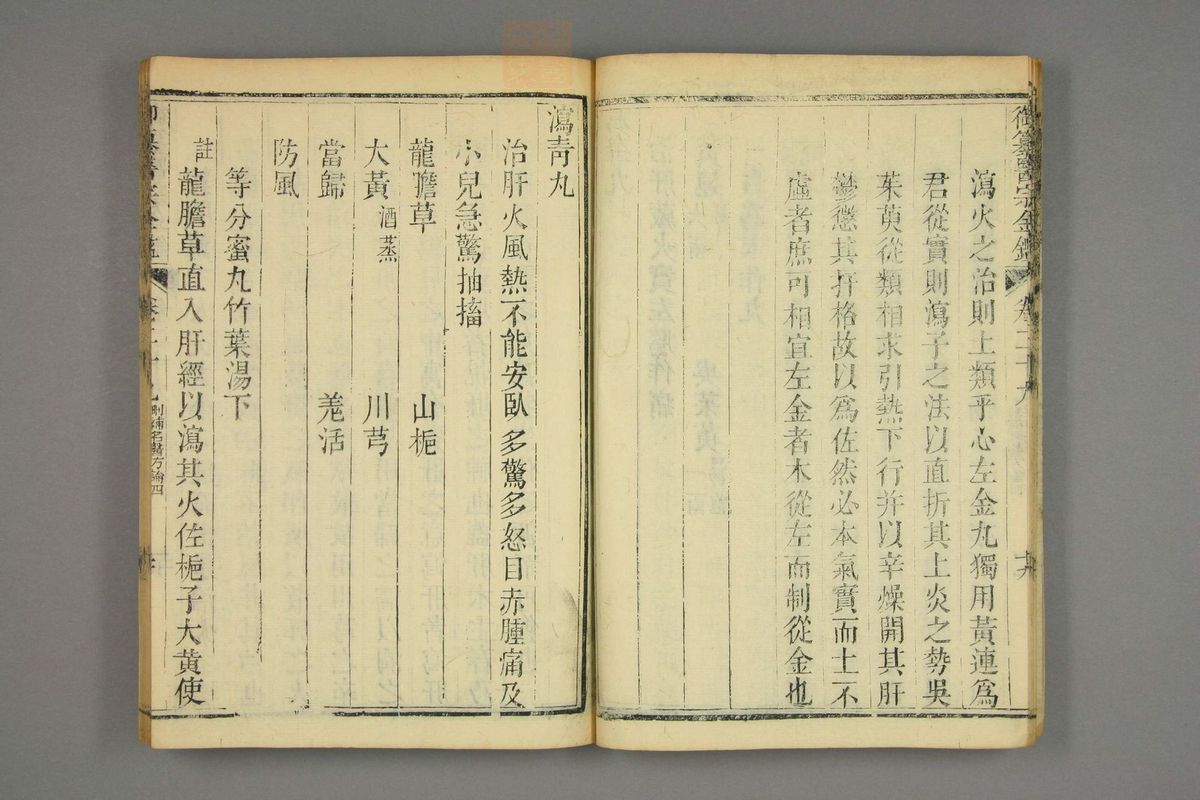 御纂醫宗金鑑 卷二十九
瀉火之治則土類乎心左金丸獨用黃連爲
君從實則瀉子之法以直折其上炎之勢吳
茱萸從類相求引熱下行并以辛燥開其肝
鬱懲其扞格故以爲佐然必本氣實而土不
虛者庶可相宜左金者木從左而制從金也
瀉靑丸
治肝火風熱不能安臥多驚多怒目赤腫痛及
小兒急驚抽搐
龍膽草 山梔
大黃酒蒸 川芎
當歸 羗活
防風
等分蜜丸竹葉湯下
註龍膽草直入肝經以瀉其火佐梔子大黃使
刪補名醫方論四